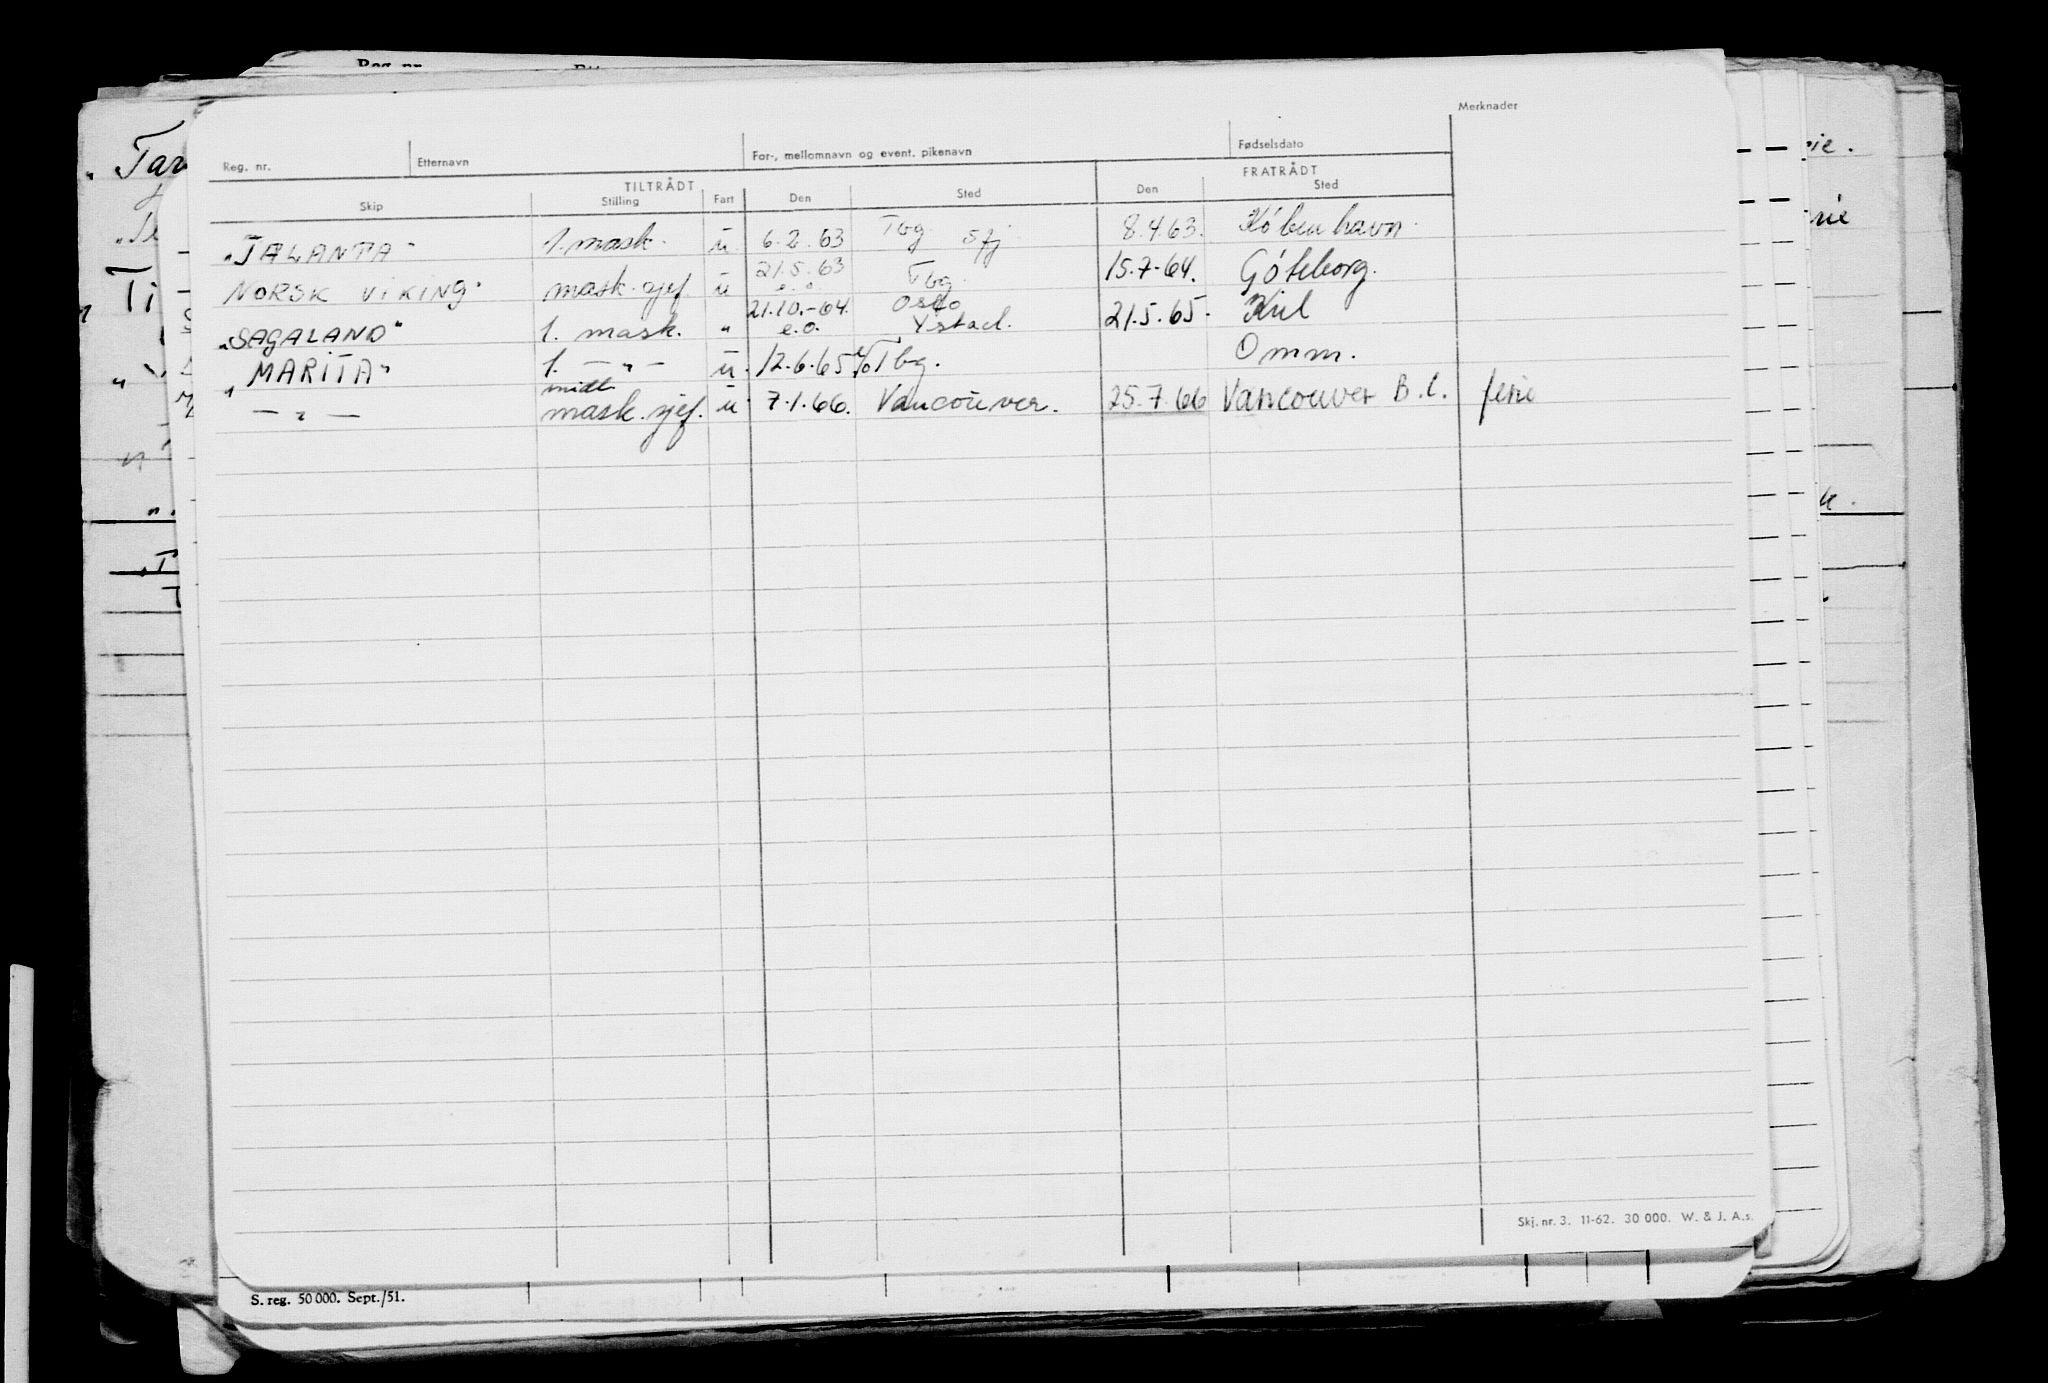 Reg. nr.
Merknader
Reg. nr. Etternavn For-, mellomnavn og event. pikenavn Fødselsdato
TILTRÅDT FRATRÅDT
Skip Stilling Fart Den Sted Den Sted
"TALANTA" 1. mask. u. 6.2.63 Tbg. sfj 8.4.63. København.
NORSK VIKING" mask.sjef. u 21.5.63 e.o. Tbg. 15.7-64. Göteborg.
"SAGALAND" 1. mask. " 21.10.-64. e.o. Oslo Ystad. 21.5.65. Kiel
"MARITA" 1. — " — u. 12.6.65 Tbg. Omm.
— " — midl. mask.sjef. u 7.1.66. Vancouver. 25.7.66 Vancouver B.C. ferie
Skj. nr. 3. 11-62. 30 000. W. & J. A.s.
S. reg. 50 000. Sept./51.